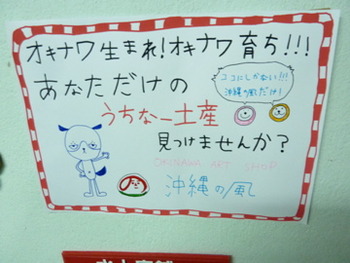 オキナワ生まれ!オキナワ育ち!!!
あなただけの
ココにしかない!!!
沖縄の風だけ!
うちなー土産
見つけませんか?
OKINAWA ART SHOP
沖縄の風